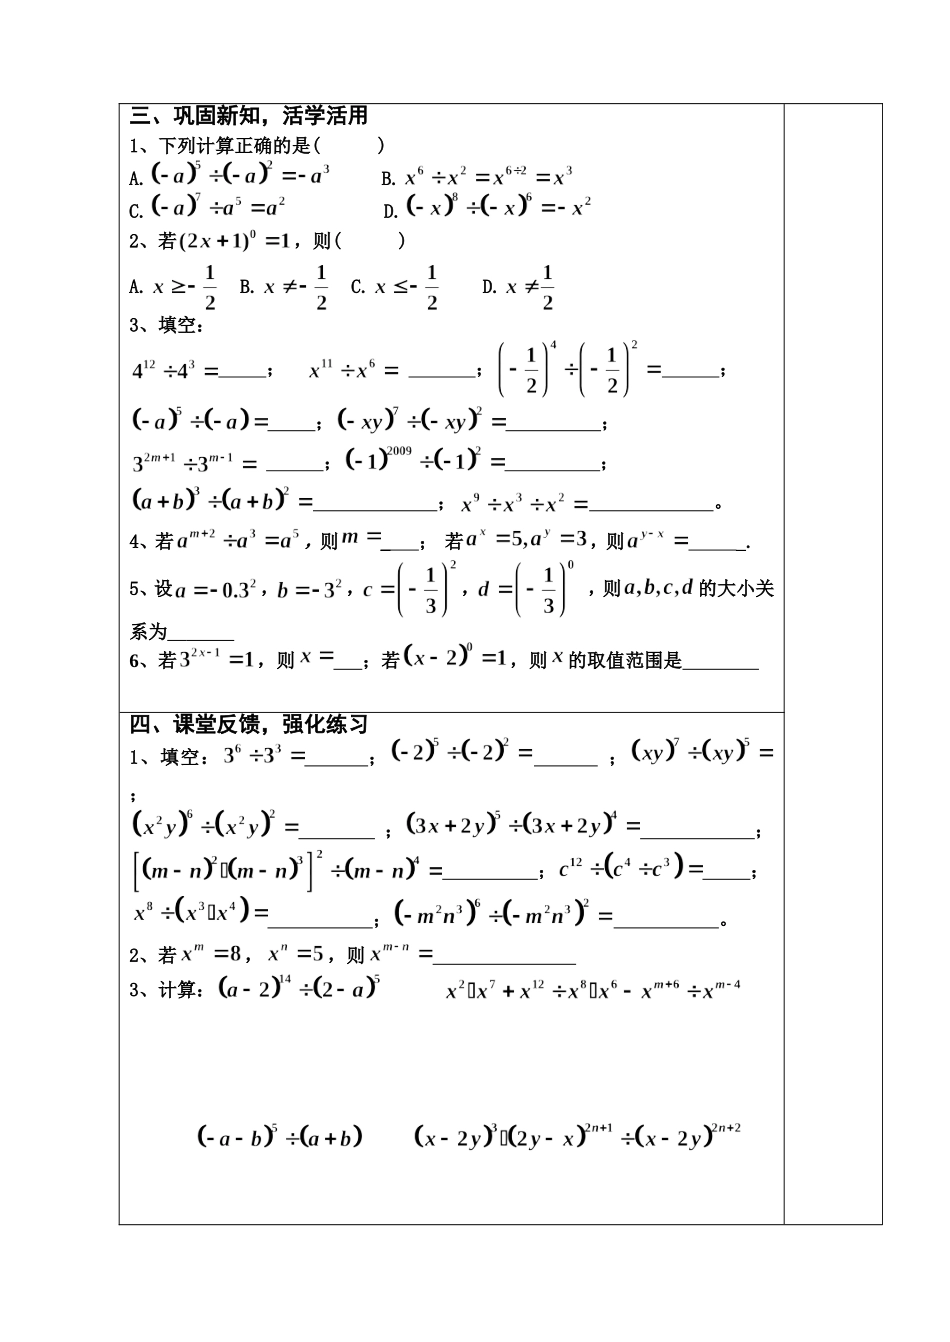 三、巩固新知，活学活用
1、下列计算正确的是(      )
A. (-a)^5÷(-a)^2=-a^3      B. x^6÷x^2=x^(6÷2)=x^3
C. (-a)^7÷a^5=a^2      D. (-x)^8÷(-x)^6=-x^2
2、若(2x+1)^0=1，则(      )
A. x≥-1/2   B. x≠-1/2   C. x≤-1/2   D. x≠1/2
3、填空：
4^12÷4^3=_____；   x^11÷x^6= _______；(-1/2)^4÷(-1/2)^2=______；
(-a)^5÷(-a)=_____；(-xy)^7÷(-xy)^2=__________；
3^(2m+1)÷3^(m-1)= ______；(-1)^2009÷(-1)^2=__________；
(a+b)^3÷(a+b)^2=_____________；x^9÷x^3÷x^2=_____________。
4、若a^(m+2)÷a^3=a^5，则m=____； 若a^x=5,a^y=3，则a^(y-x)=______.
5、设a=-0.3^2，b=-3^2，c=(-1/3)^2，d=(-1/3)^0，则a,b,c,d的大小关
系为_______
6、若3^(2x-1)=1，则x=___；若(x-2)^0=1，则x的取值范围是________
四、课堂反馈，强化练习
1、填空：3^6÷3^3=_______；(-2)^5÷(-2)^2=_______ ；(xy)^7÷(xy)^5=
；
(x^2y)^6÷(x^2y)^2=________ ；(3x+2y)^5÷(3x+2y)^4=____________；
[(m-n)^2▯(m-n)^3]^2÷(m-n)^4=__________；c^12÷(c^4÷c^3)=_____；
x^8÷(x^3▯x^4)=___________；(-m^2n^3)^6÷(-m^2n^3)^2=___________。
2、若x^m=8，x^n=5，则x^(m-n)=_______________
3、计算：(a-2)^14÷(2-a)^5      x^2▯x^7+x^12÷x^8▯x^6-x^(m+6)÷x^(m-4)
(-a-b)^5÷(a+b)      (x-2y)^3▯(2y-x)^(2n+1)÷(x-2y)^(2n+2)